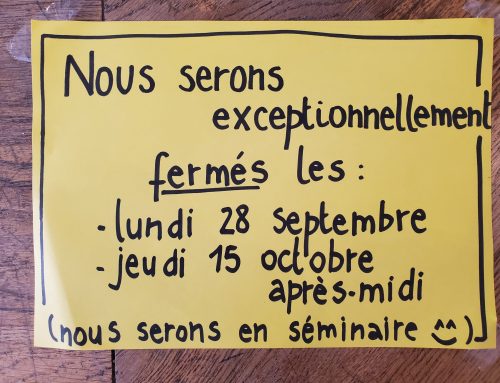 Nous serons
exceptionnellement
fermés les :
- lundi 28 septembre
- jeudi 15 octobre
après-midi
(nous serons en séminaire ^^)